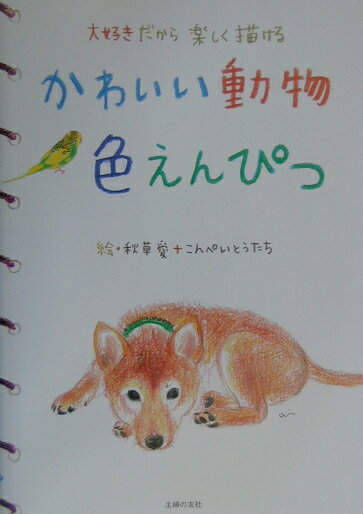 大好きだから 楽しく描ける
かわいい動物
色えんぴつ
絵・秋草愛+こんぺいとうたち
主婦の友社